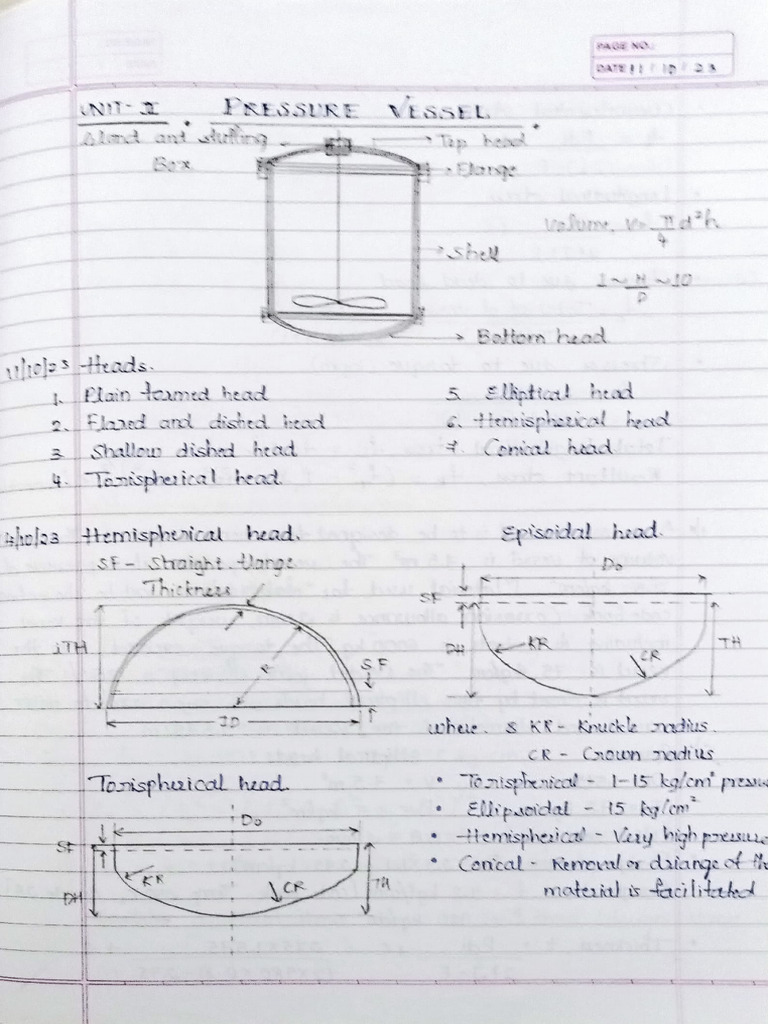 PAGE NO.:
DATE 11 / 10 / 23
UNIT-II . PRESSURE VESSEL .
Gland and stuffing Box
Top head
Flange
Volume, V = π/4 d²h
Shell
1 ~ H/D ~ 10
Bottom head
11/10/23 Heads.
1. Plain formed head
2. Flared and dished head
3. Shallow dished head
4. Torispherical head.
5. Elliptical head
6. Hemispherical head
7. Conical head
/10/23 Hemispherical head.
SF - Straight flange
Thickness
ITH
R
SF
ID
Episoidal head.
Do
SF
DH
KR
CR
TH
where. s KR - Knuckle radius.
CR - Crown radius
Torispherical head.
Do
SF
DH
KR
CR
TH
• Torispherical - 1-15 kg/cm²
• Ellipsoidal - 15 kg/cm²
• Hemispherical - Very high pressure
• Conical - Removal or driange of
material is facilitated